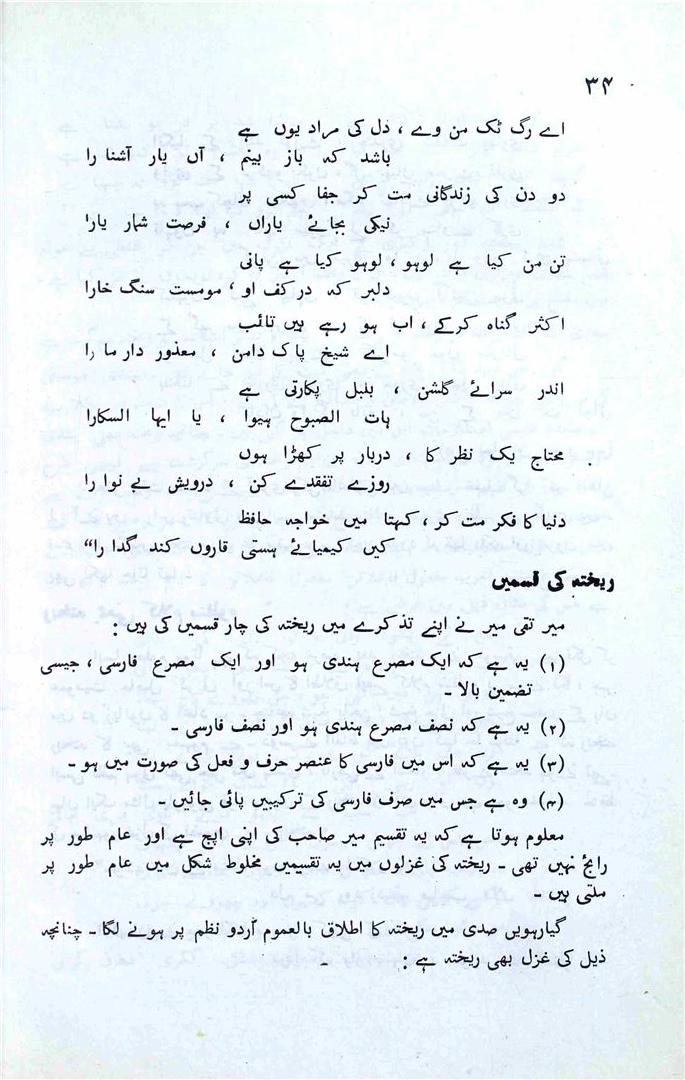 ۳۴
اے رگ ٹک من وے ، دل کی مراد یوں ہے
باشد کہ باز بینم ، آں یار آشنا را
دو دن کی زندگانی مت کر جفا کسی پر
نیکی بجائے یاراں ، فرصت شمار یارا
تن من کیا ہے لوہو ، لوہو کیا ہے پانی
دلبر کہ در کف او ، مومست سنگ خارا
اکثر گناہ کرکے ، اب ہو رہے ہیں تائب
اے شیخ پاک دامن ، معذور دار ما را
اندر سرائے گلشن ، بلبل پکارتی ہے
ہات الصبوح ہیوا ، یا ایہا السکارا
محتاج یک نظر کا ، دربار پر کھڑا ہوں
روزے تفقدے کن ، درویش بے نوا را
دنیا کا فکر مت کر ، کہتا میں خواجہ حافظ
کیں کیمیائے ہستی قاروں کند گدا را“
ریختہ کی قسمیں
میر تقی میر نے اپنے تذکرے میں ریختہ کی چار قسمیں کی ہیں :
(۱) یہ ہے کہ ایک مصرع ہندی ہو اور ایک مصرع فارسی ، جیسی
تضمین بالا ۔
(۲) یہ ہے کہ نصف مصرع ہندی ہو اور نصف فارسی ۔
(۳) یہ ہے کہ اس میں فارسی کا عنصر حرف و فعل کی صورت میں ہو ۔
(۴) وہ ہے جس میں صرف فارسی کی ترکیبیں پائی جائیں ۔
معلوم ہوتا ہے کہ یہ تقسیم میر صاحب کی اپنی اپج ہے اور عام طور پر
رائج نہیں تھی ۔ ریختہ کی غزلوں میں یہ تقسیمیں مخلوط شکل میں عام طور پر
ملتی ہیں ۔
گیارہویں صدی میں ریختہ کا اطلاق بالعموم اُردو نظم پر ہونے لگا ۔ چنانچہ
ذیل کی غزل بھی ریختہ ہے : ۔